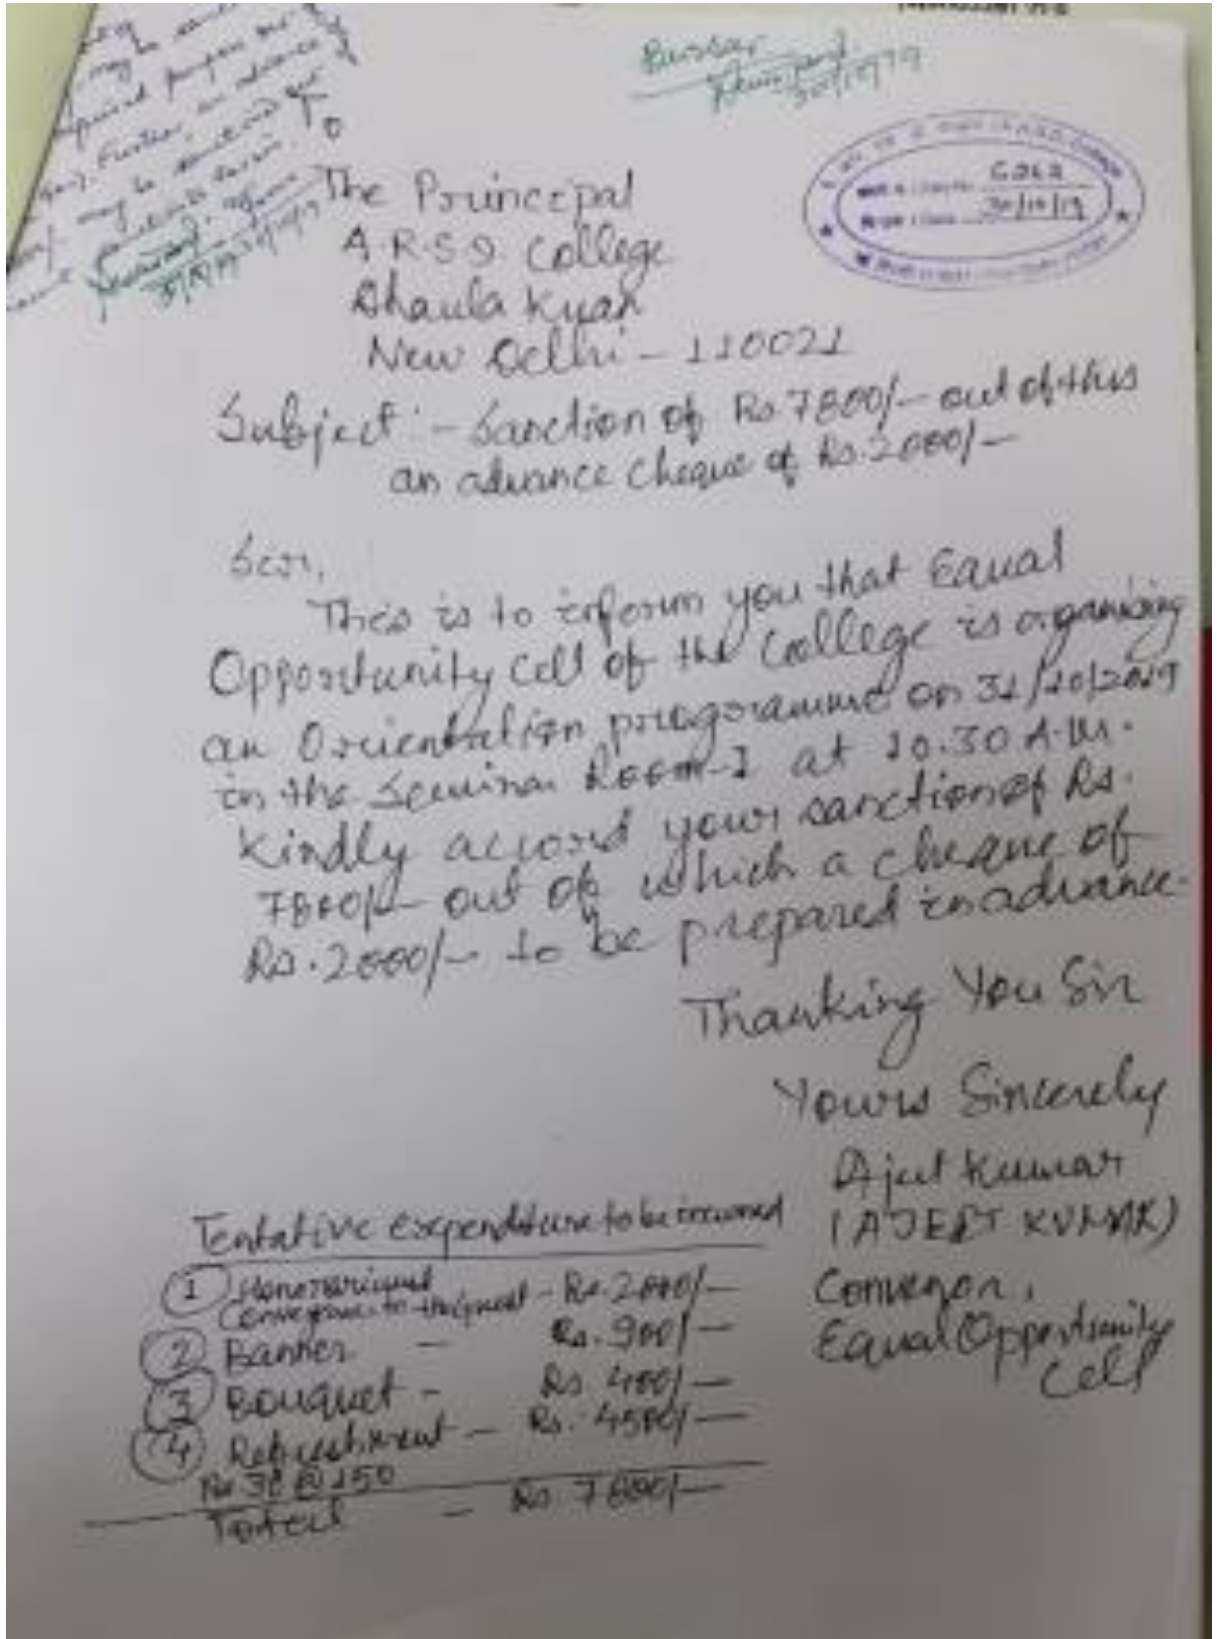 may be
required purpose
Further, an advance
may be sanctioned
30/10/19
31/10/19
Bursar
30/10/19
6262
30/10/19
To
The Principal
A.R.S.D. College
Dhaula Kuan
New Delhi - 110021
Subject :- Sanction of Rs 7800/- out of this
an advance cheque of Rs. 2000/-
Sir,
This is to inform you that Equal
Opportunity Cell of the College is organising
an Orientation programme on 31/10/2019
in the Seminar Room-I at 10.30 A.M.
Kindly accord your sanction of Rs.
7800/- out of which a cheque of
Rs. 2000/- to be prepared in advance.
Thanking You Sir
Yours Sincerely
Ajeet Kumar
(AJEET KUMAR)
Convenor,
Equal Opportunity
Cell
Tentative expenditure to be incurred
1 Honorarium
Conveyance to the guest - Rs. 2000/-
2 Banner - Rs. 900/-
3 Bouquet - Rs 400/-
4 Refreshment - Rs. 4500/-
30 @ 150
Total - Rs. 7800/-